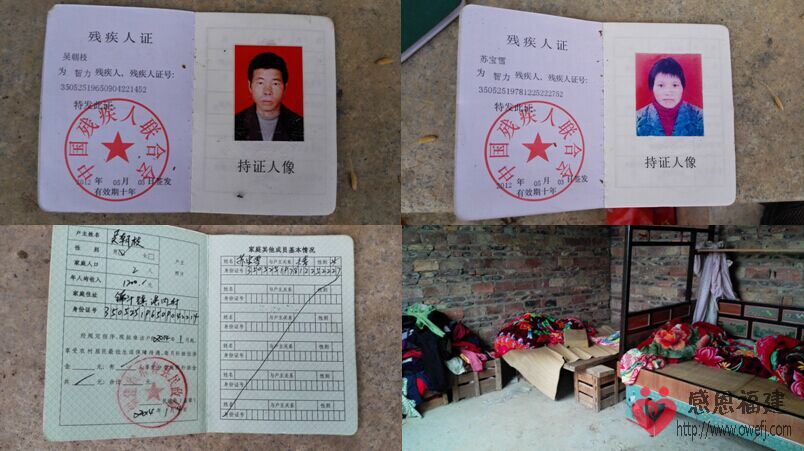 残疾人证
吴朝枝
为 智力 残疾人，残疾人证号:
35052519650904221452
特发此证。
中国残疾人联合会
2012 年 05 月 03 日签发
有效期十年
持证人像
残疾人证
苏宝雪
为 智力 残疾人，残疾人证号:
35052519781225222752
特发此证。
中国残疾人联合会
2012 年 05 月 03 日签发
有效期十年
持证人像
户主姓名 吴朝枝
性别 男 女
家庭人口 2 人
年人均收入 1200 元
家庭住址
身份证号
家庭其他成员基本情况
姓名 苏宝雪 与户主关系 性别
身份证号
姓名 与户主关系 性别
身份证号
姓名 与户主关系 性别
身份证号
姓名 与户主关系 性别
身份证号
姓名 与户主关系 性别
身份证号
姓名 与户主关系 性别
身份证号
感恩福建
http://www.owefj.com